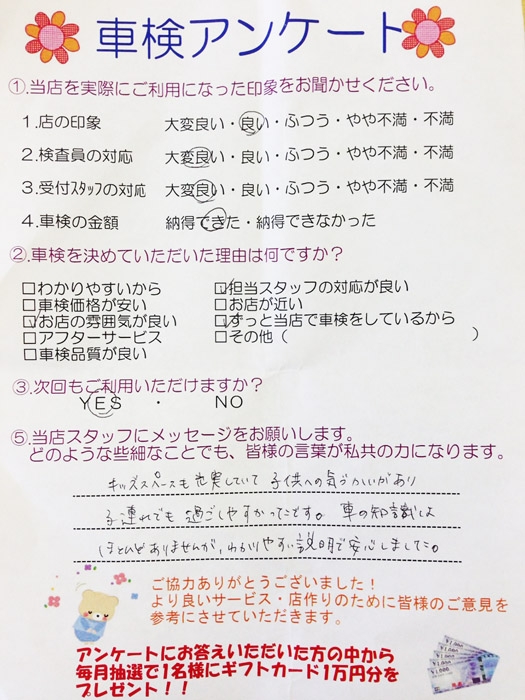 車検アンケート
①.当店を実際にご利用になった印象をお聞かせください。
1.店の印象 大変良い・良い・ふつう・やや不満・不満
2.検査員の対応 大変良い・良い・ふつう・やや不満・不満
3.受付ｽﾀｯﾌの対応 大変良い・良い・ふつう・やや不満・不満
4.車検の金額 納得できた・納得できなかった
②.車検を決めていただいた理由は何ですか？
□わかりやすいから □担当スタッフの対応が良い
□車検価格が安い □お店が近い
□お店の雰囲気が良い □ずっと当店で車検をしているから
□アフターサービス □その他（ ）
□車検品質が良い
③.次回もご利用いただけますか？
YES ・ NO
⑤.当店スタッフにメッセージをお願いします。
どのような些細なことでも、皆様の言葉が私共の力になります。
キッズスペースも充実していて 子供への気づかいがあり
子連れでも 過ごしやすかったです。 車の知識は
ほとんどありませんが、わかりやすい説明で安心しました。
ご協力ありがとうございました！
より良いサービス・店作りのために皆様のご意見を
参考にさせていただきます。
アンケートにお答えいただいた方の中から
毎月抽選で1名様にギフトカード1万円分を
プレゼント！！
¥1,000
¥1,000
¥1,000